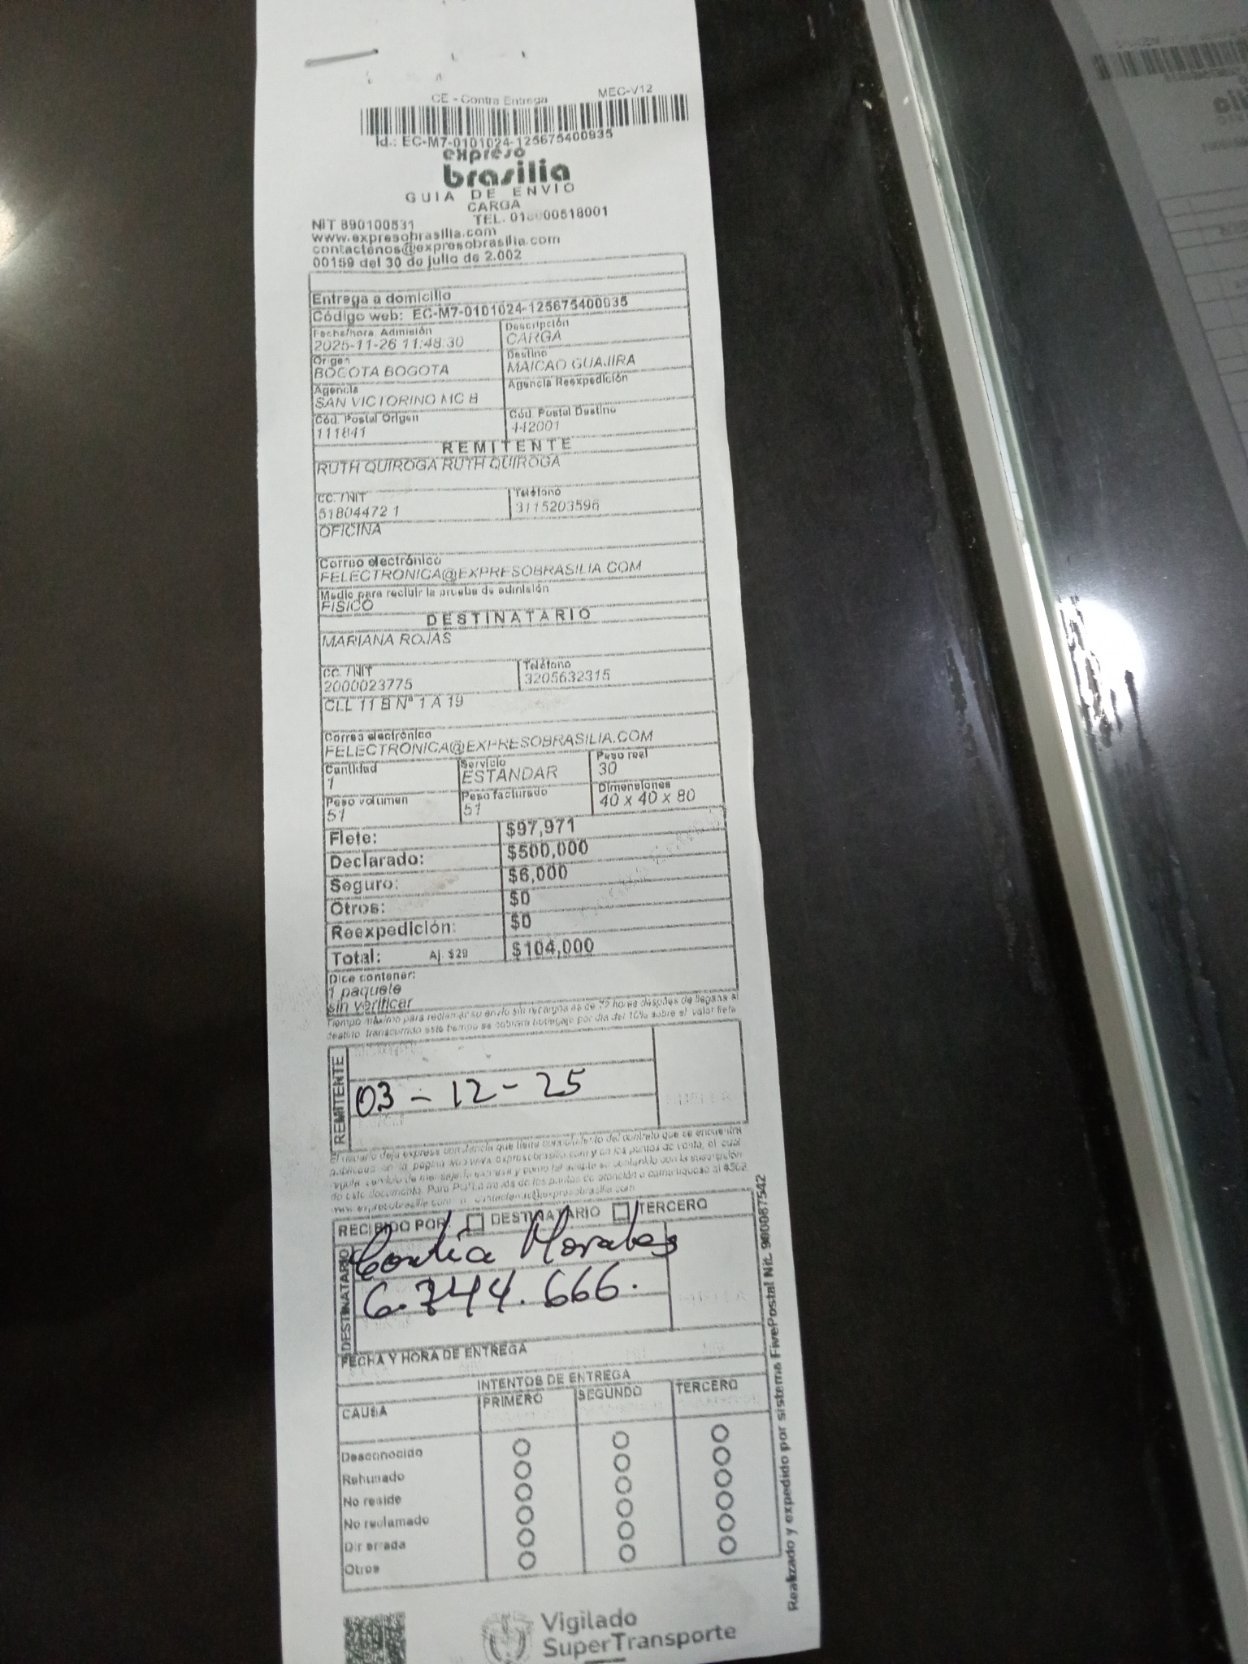 CE - Contra Entrega MEC-V12
Id.: EC-M7-0101024-125675400935
expreso
brasilia
GUIA DE ENVIO
CARGA
NIT 890100531 TEL. 018000518001
www.expresobrasilia.com
contactenos@expresobrasilia.com
00159 del 30 de julio de 2.002
Entrega a domicilio
Código web: EC-M7-0101024-125675400935
Fecha/hora Admisión Descripción
2025-11-26 11:48:30 CARGA
Origen Destino
BOGOTA BOGOTA MAICAO GUAJIRA
Agencia Agencia Reexpedición
SAN VICTORINO MC B
Cód. Postal Origen Cód. Postal Destino
111841 442001
REMITENTE
RUTH QUIROGA RUTH QUIROGA
CC. /NIT Teléfono
51804472 1 3115203596
OFICINA
Correo electrónico
FELECTRONICA@EXPRESOBRASILIA.COM
Medio para recibir la prueba de admisión
FISICO
DESTINATARIO
MARIANA ROJAS
CC. /NIT Teléfono
2000023775 3205632315
CLL 11 B N° 1 A 19
Correo electrónico
FELECTRONICA@EXPRESOBRASILIA.COM
Cantidad Servicio Peso real
1 ESTANDAR 30
Peso volumen Peso facturado Dimensiones
51 51 40 x 40 x 80
Flete: $97,971
Declarado: $500,000
Seguro: $6,000
Otros: $0
Reexpedición: $0
Total: Aj. $29 $104,000
Dice contener:
1 paquete
sin verificar
Tiempo máximo para reclamar su envío sin recargos es de 72 horas después de llegada al
destino transcurrido este tiempo se cobrara bodegaje por día del 10% sobre el valor flete
REMITENTE
03-12-25
El usuario deja expresa constancia que tiene conocimiento del contrato que se encuentra
RECIBIDO POR: DESTINATARIO TERCERO
DESTINATARIO
Morales
6.744.666.
FECHA Y HORA DE ENTREGA
INTENTOS DE ENTREGA
CAUSA PRIMERO SEGUNDO TERCERO
Desconocido
Rehusado
No reside
No reclamado
Dir errada
Otros
Realizado y expedido por sistema FivePostal Nit. 900087542
Vigilado
SuperTransporte